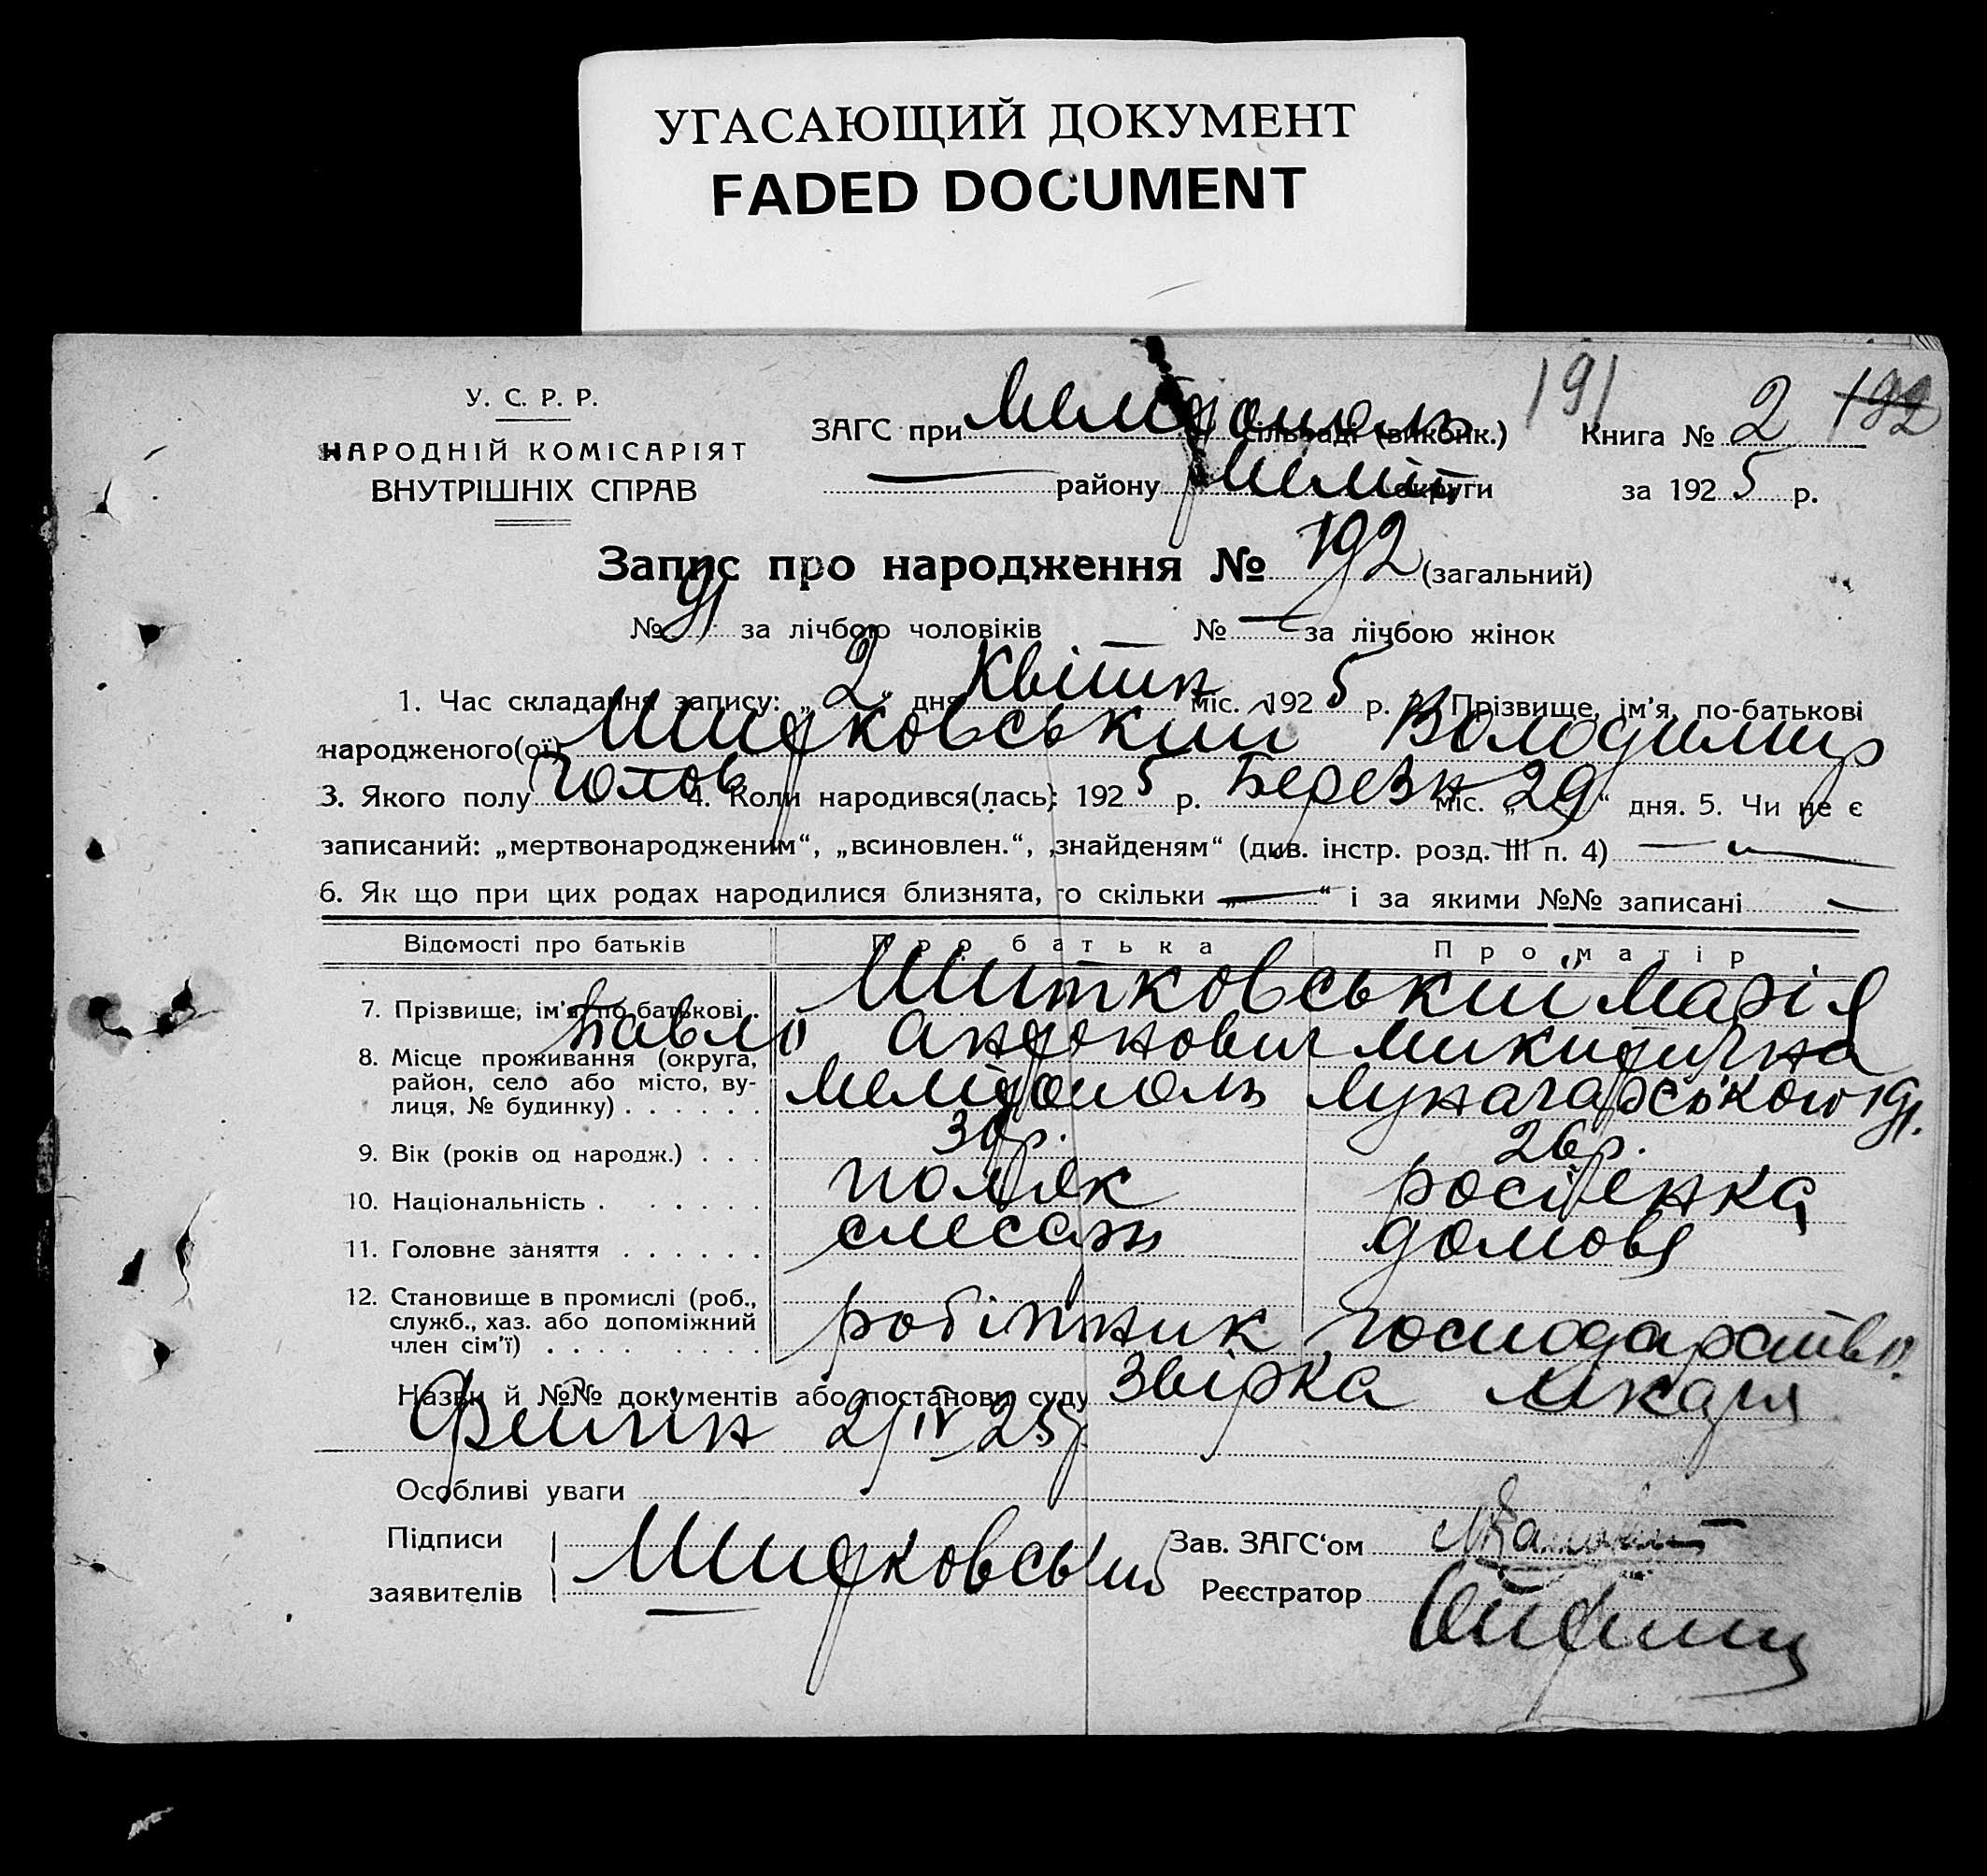 УГАСАЮЩИЙ ДОКУМЕНТ
FADED DOCUMENT
У. С. Р. Р.
НАРОДНІЙ КОМІСАРІЯТ
ВНУТРІШНІХ СПРАВ
ЗАГС при Мелідополь сільраді (виконк.) 191 Книга № 2 192
— району Меліт округи за 1925 р.
Запис про народження № 192 (загальний)
№ 91 за лічбою чоловіків № — за лічбою жінок
1. Час складання запису: „2“ дня Квітня міс. 1925 р. 2. Прізвище, ім'я, по-батькові
народженого(ої) Шидковський Володимир
3. Якого полу чолов 4. Коли народився(лась): 1925 р. Березн міс. „29“ дня. 5. Чи не є
записаний: „мертвонародженим“, „всиновлен.“, „знайденям“ (див. інстр. розд. III п. 4) —
6. Як що при цих родах народилися близнята, то скільки „—“ і за якими №№ записані —
Відомості про батьків Про батька Про матір
7. Прізвище, ім'я, по-батькові Шитковський Марія
Павло Андонович Микидична
8. Місце проживання (округа, район, село або місто, вулиця, № будинку) Мелідополь Луначарського 191.
9. Вік (років од народж.) 30р. 26р.
10. Національність поляк росіенка
11. Головне заняття слесарь домове
12. Становище в промислі (роб., служб., хаз. або допоміжний член сім'ї) робітник господарство
Назви й №№ документів або постанови суду Звірка лікаря
2/IV 25р
Особливі уваги
Підписи
заявителів Шидковський
Зав. ЗАГС'ом
Реєстратор